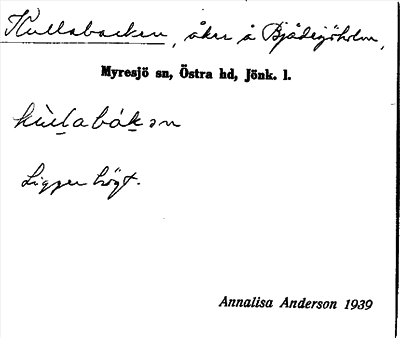 Kullabacken, åker å Bjädesjöholm,
Myresjö sn, Östra hd, Jönk. l.
kùlabákən
Ligger högt.
Annalisa Anderson 1939